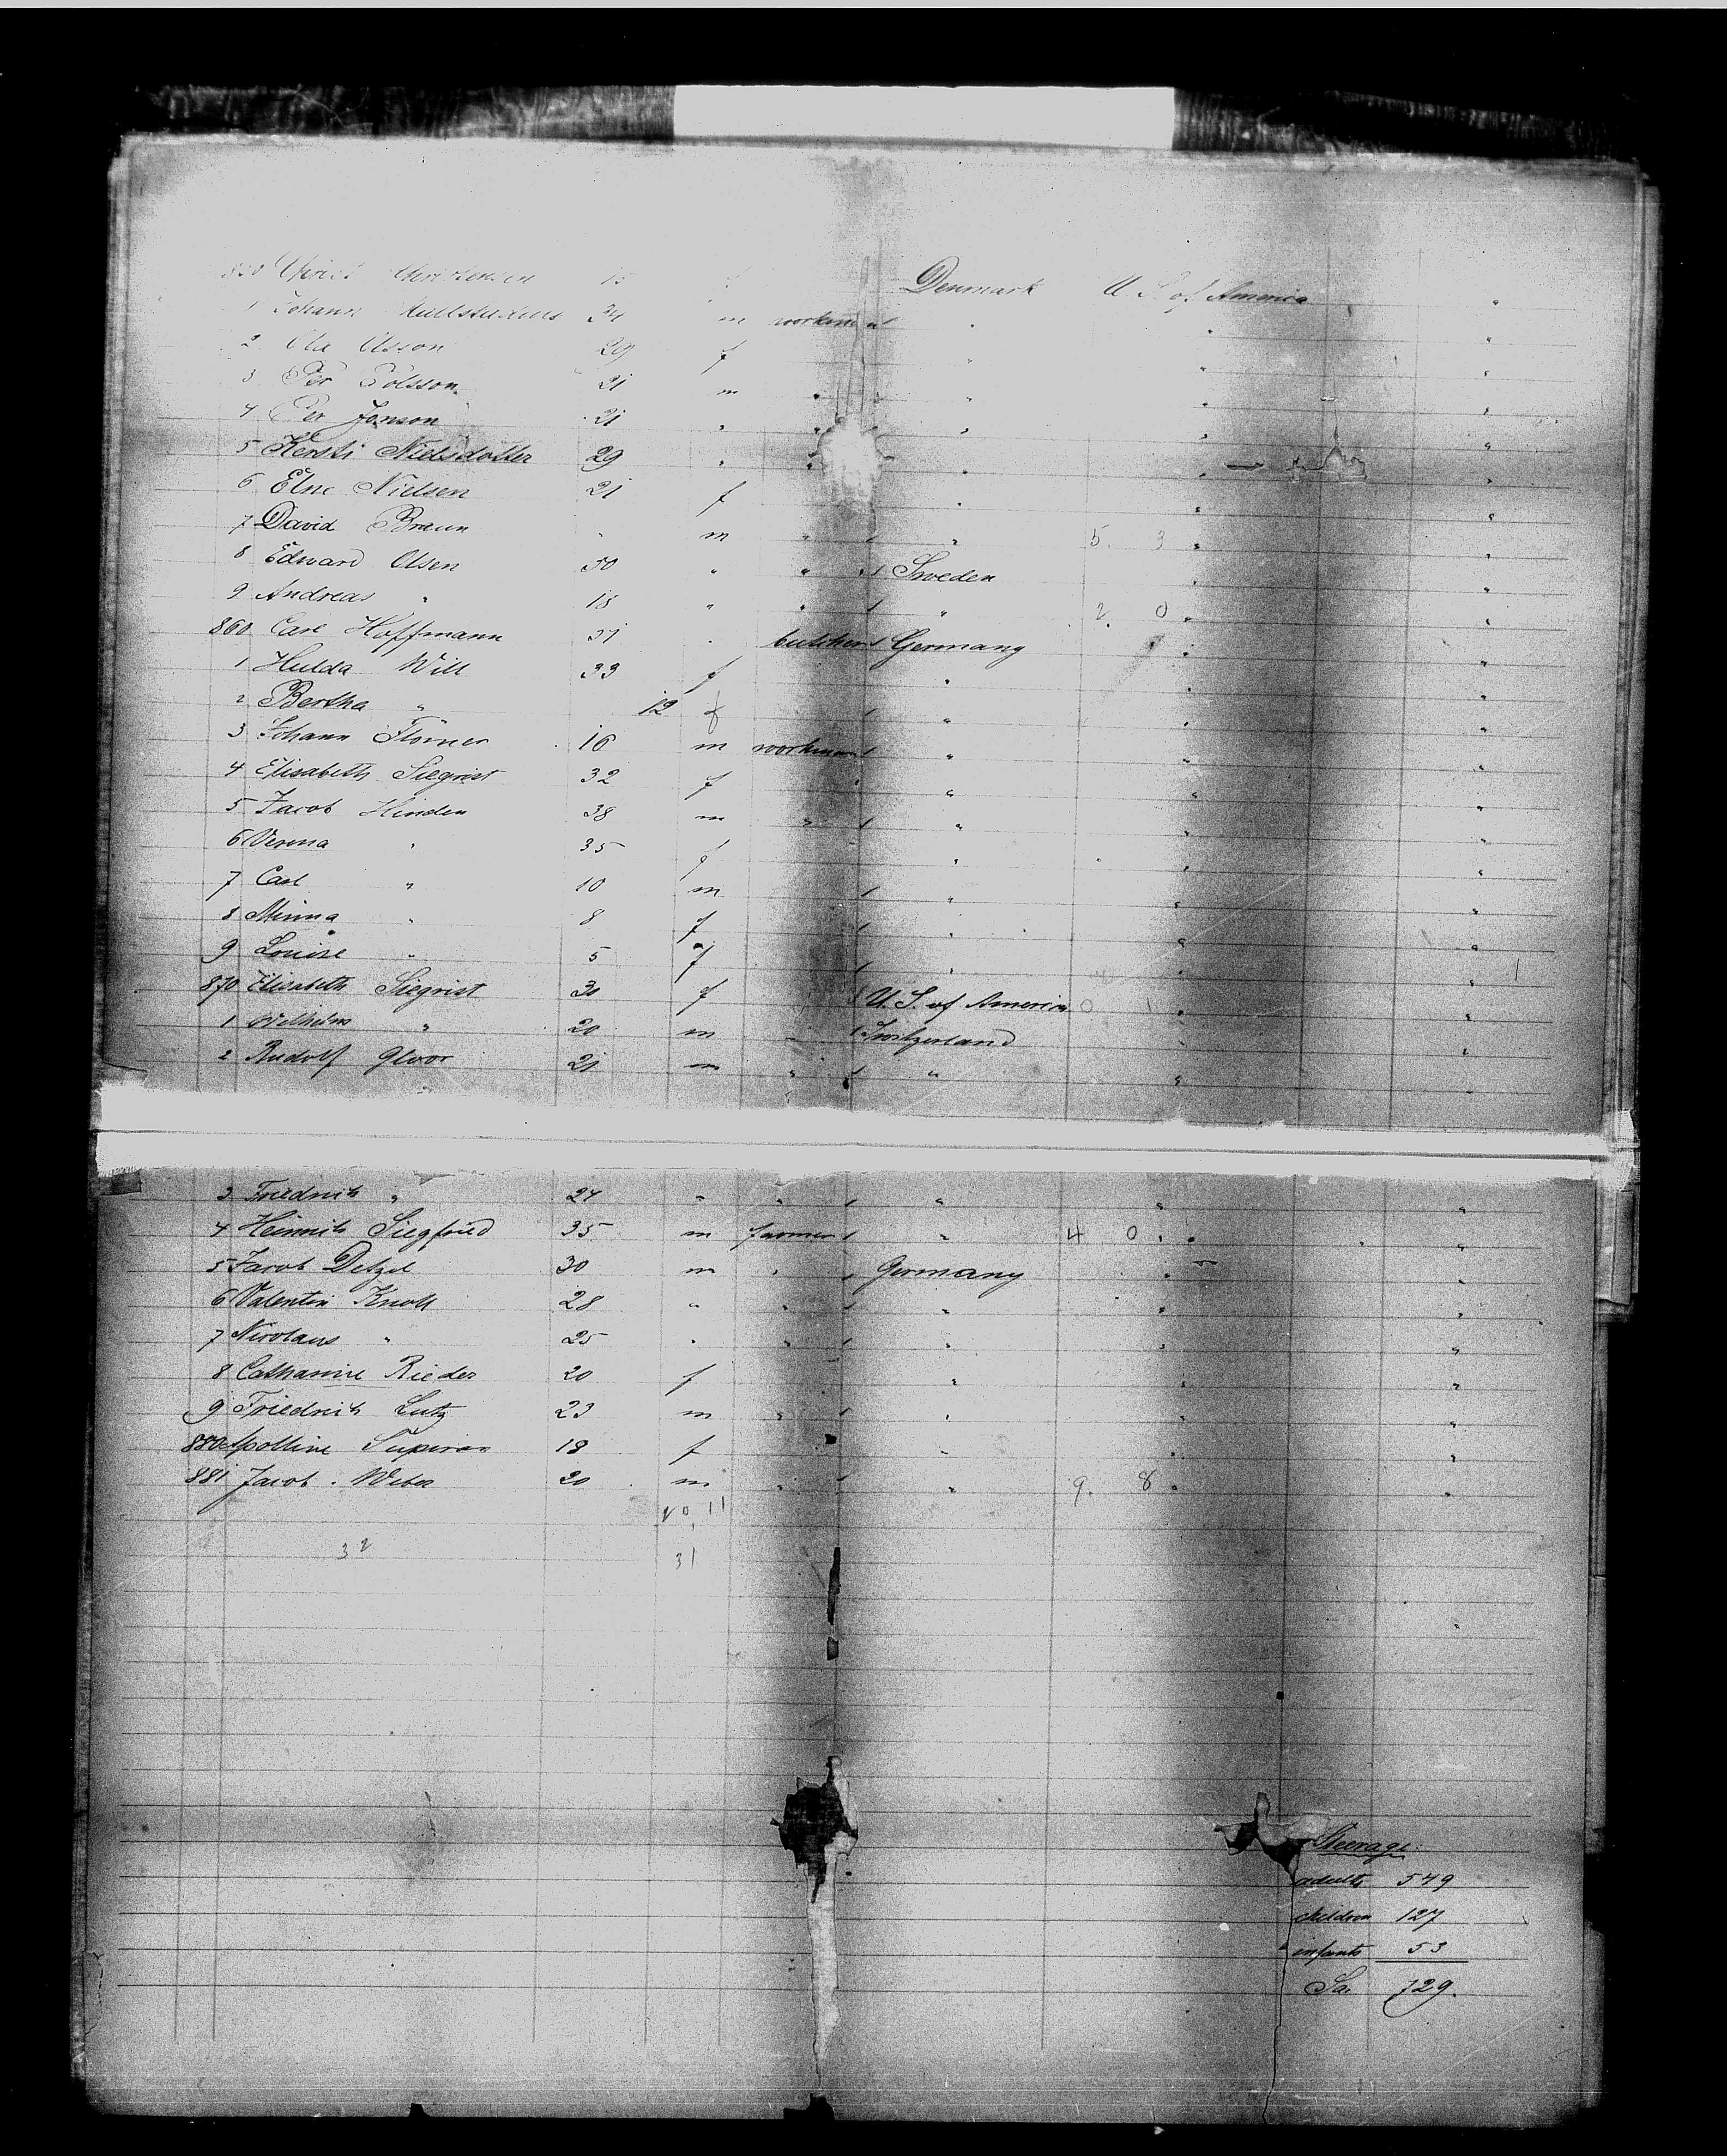 850 Christensen 15 f Denmark U S of America "
1 Johann 34 m workman / " " "
2 Ola Olsson 29 f " " "
3 Per Polsson 21 m " " " "
4 Per Jonson 21 " " " " "
5 Kersti Nielsdotter 29 " " " " "
6 Elne Nielsen 21 f " " "
7 David Braun " m " / " 5. 3 " "
8 Edward Olsen 50 " " / Sweden " "
9 Andreas " 18 " " / " 2. 0 " "
860 Carl Hoffmann 31 " butcher / Germany " "
1 Hulda Will 33 f " " "
2 Bertha " 12 f / " " "
3 Johann 16 m workman / " " "
4 Elisabeth Siegrist 32 f " " "
5 Jacob Hinden 38 m " / " " "
6 Verena " 35 f " " "
7 Carl " 10 m / " " "
8 Minna " 8 f / " " "
9 Louise " 5 f / " " " 1
870 Elisabeth Siegrist 30 f / U. S. of America 0 1 " "
1 Wilhelm " 20 m " / Switzerland " "
2 Rudolf Gloor 21 m " / " " "
3 Friedrich " 24 " " / " " "
4 Heinrich Siegfried 35 m farmer / " 4 0 " "
5 Jacob Detzel 30 m " / Germany " "
6 Valentin Knoll 28 " " / " " "
7 Nicolaus " 25 " " / " " "
8 Catharine Rieder 20 f " " "
9 Friedrich Lutz 23 m " / " " "
880 Apolline 18 f " " "
881 Jacob Weber 20 m " / " 9. 8 " "
20 11
32 31
Steerage:
adults 549
children 127
infants 53
Sa. 729.